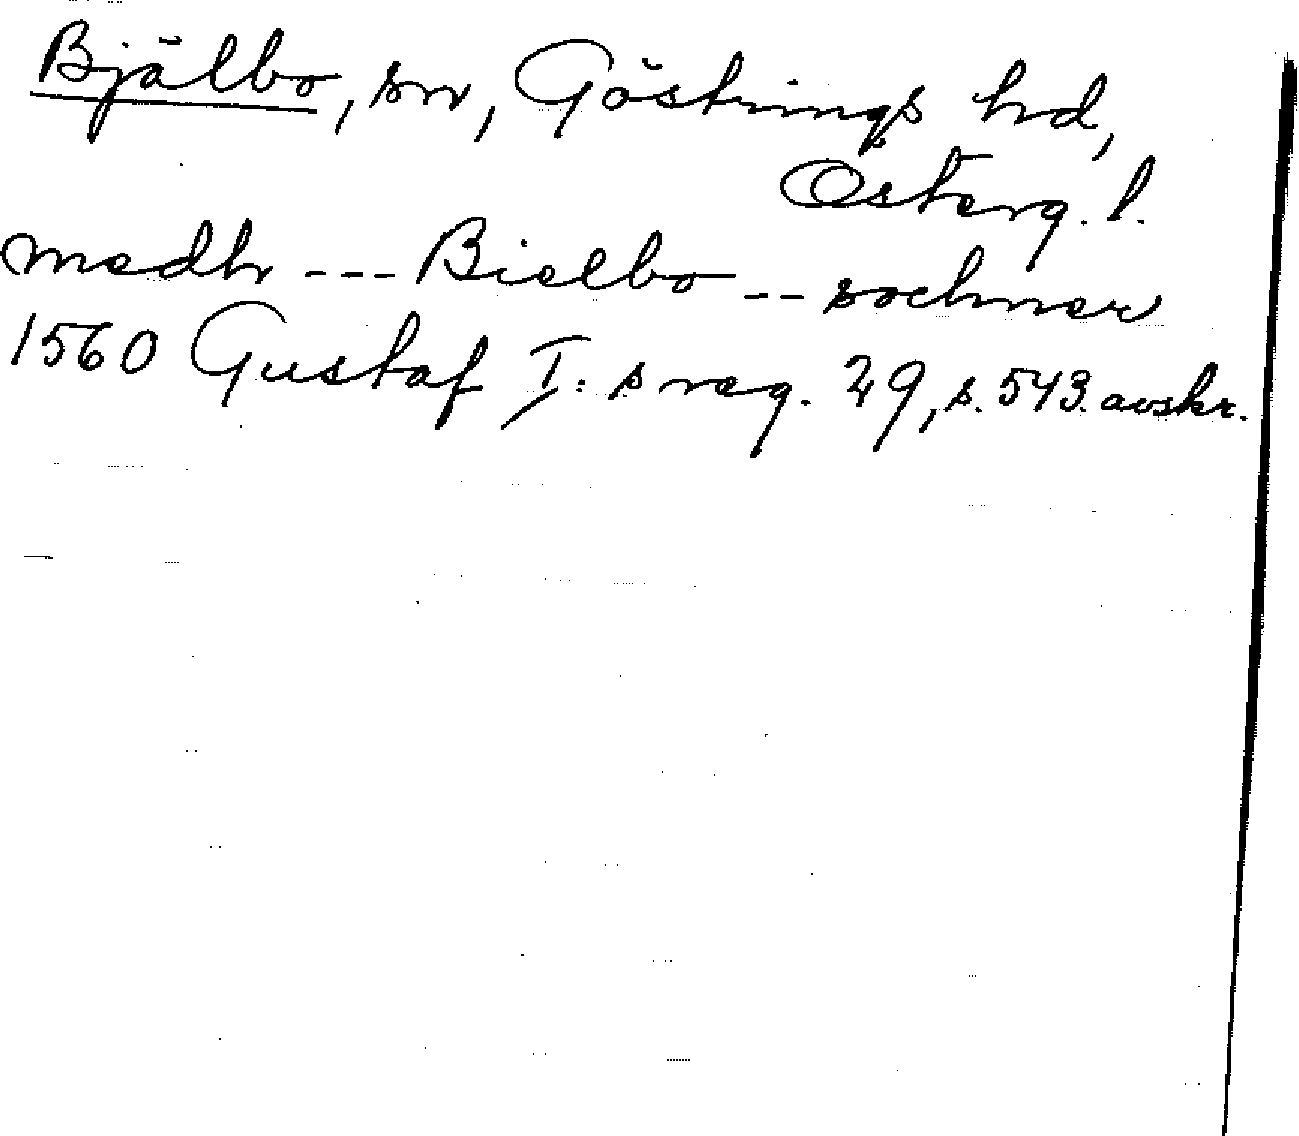 Bjälbo, sn, Göstrings hd,
Österg. l.
medh --- Bielbo -- sochner
1560 Gustaf I:s reg. 29, s. 543. avskr.